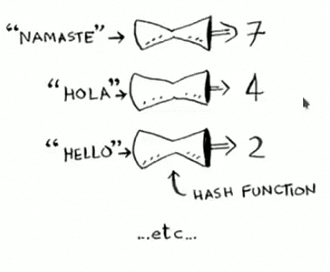 “NAMASTE” → ⇒ 7
“HOLA” → ⇒ 4
“HELLO” → ⇒ 2
HASH FUNCTION
...etc...